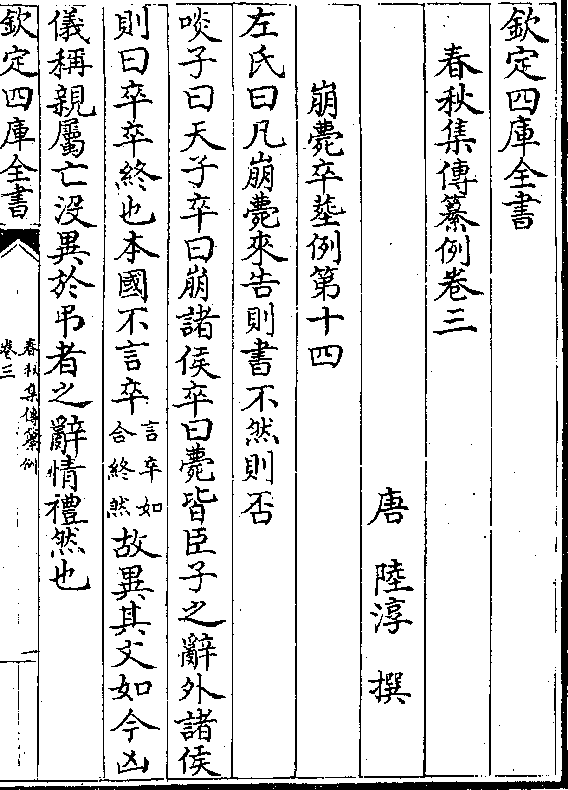 欽定四庫全書
春秋集傳纂例卷三
唐 陸淳 撰
崩薨卒塟例第十四
左氏曰凡崩薨來告則書不然則否
啖子曰天子卒曰崩諸侯卒曰薨皆臣子之辭外諸侯
則曰卒卒終也本國不言卒言卒如合終然故異其文如今凶
儀稱親屬亡没異於弔者之辭情禮然也
欽定四庫全書
春秋集傳纂例
卷三
一